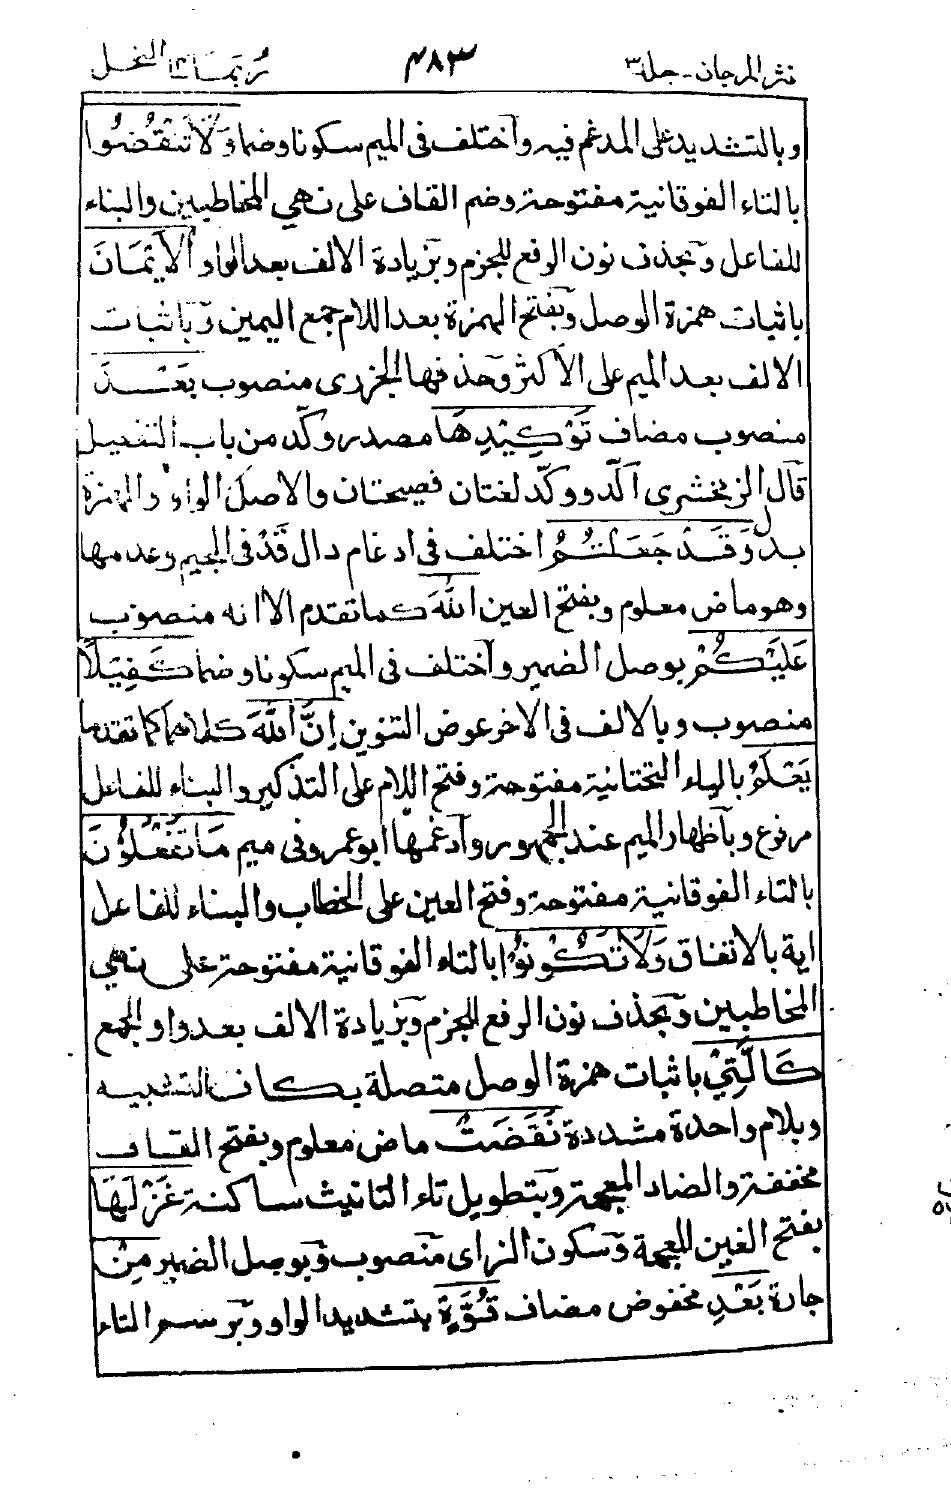 نثر المرجان - جلد ۳
۴۸۳
ربما ۱۴ النحل
وبالتشديد على المدغم فيه وآختلف فى الميم سكونا وضما وَلَا تَنْقُضُوا
بالتاء الفوقانية مفتوحة وضم القاف على نهي المخاطبين والبناء
للفاعل وبحذف نون الرفع للجزم وبزيادة الالف بعد الواو الْاَيْمَانَ
باثبات همزة الوصل وبفتح الهمزة بعد اللام جمع اليمين وباثبات
الالف بعد الميم على الأكثر وحذفها الجزرى منصوب بَعْدَ
منصوب مضاف تَوْكِيْدِهَا مصدر وكّد من باب التفعيل
قال الزمخشرى اكّد ووكّد لغتان فصيحتان والاصل الواو والهمزة
بدل وَقَدْ جَعَلْتُمُ اختلف فى ادغام دال قَدْ فى الجيم وعدمها
وهو ماض معلوم وبفتح العين اللّٰهَ كما تقدم الا انه منصوب
عَلَيْكُمْ بوصل الضمير وآختلف فى الميم سكونا وضما كَفِيْلًا
منصوب وبالالف فى الاخر عوض التنوين اِنَّ اللّٰهَ كلاهما كما تقدما
يَعْلَمُ بالياء التحتانية مفتوحة وفتح اللام على التذكير والبناء للفاعل
مرفوع وبآظهار الميم عند الجمهور وآدغمها ابو عمرو فى ميم مَا تَفْعَلُوْنَ
بالتاء الفوقانية مفتوحة وفتح العين على الخطاب والبناء للفاعل
اية بالاتفاق وَلَا تَكُوْنُوْا بالتاء الفوقانية مفتوحة على نهي
المخاطبين وبحذف نون الرفع للجزم وبزيادة الالف بعد واو الجمع
كَالَّتِيْ باثبات همزة الوصل متصلة بكاف التشبيه
وبلام واحدة مشددة نَقَضَتْ ماض معلوم وبفتح القاف
مخففة والضاد المعجمة وبتطويل تاء التانيث ساكنة غَزْلَهَا
بفتح الغين المعجمة وسكون الزاى منصوب وبوصل الضمير مِنْ
جارة بَعْدِ مخفوض مضاف قُوَّةٍ بتشديد الواو وبرسم التاء